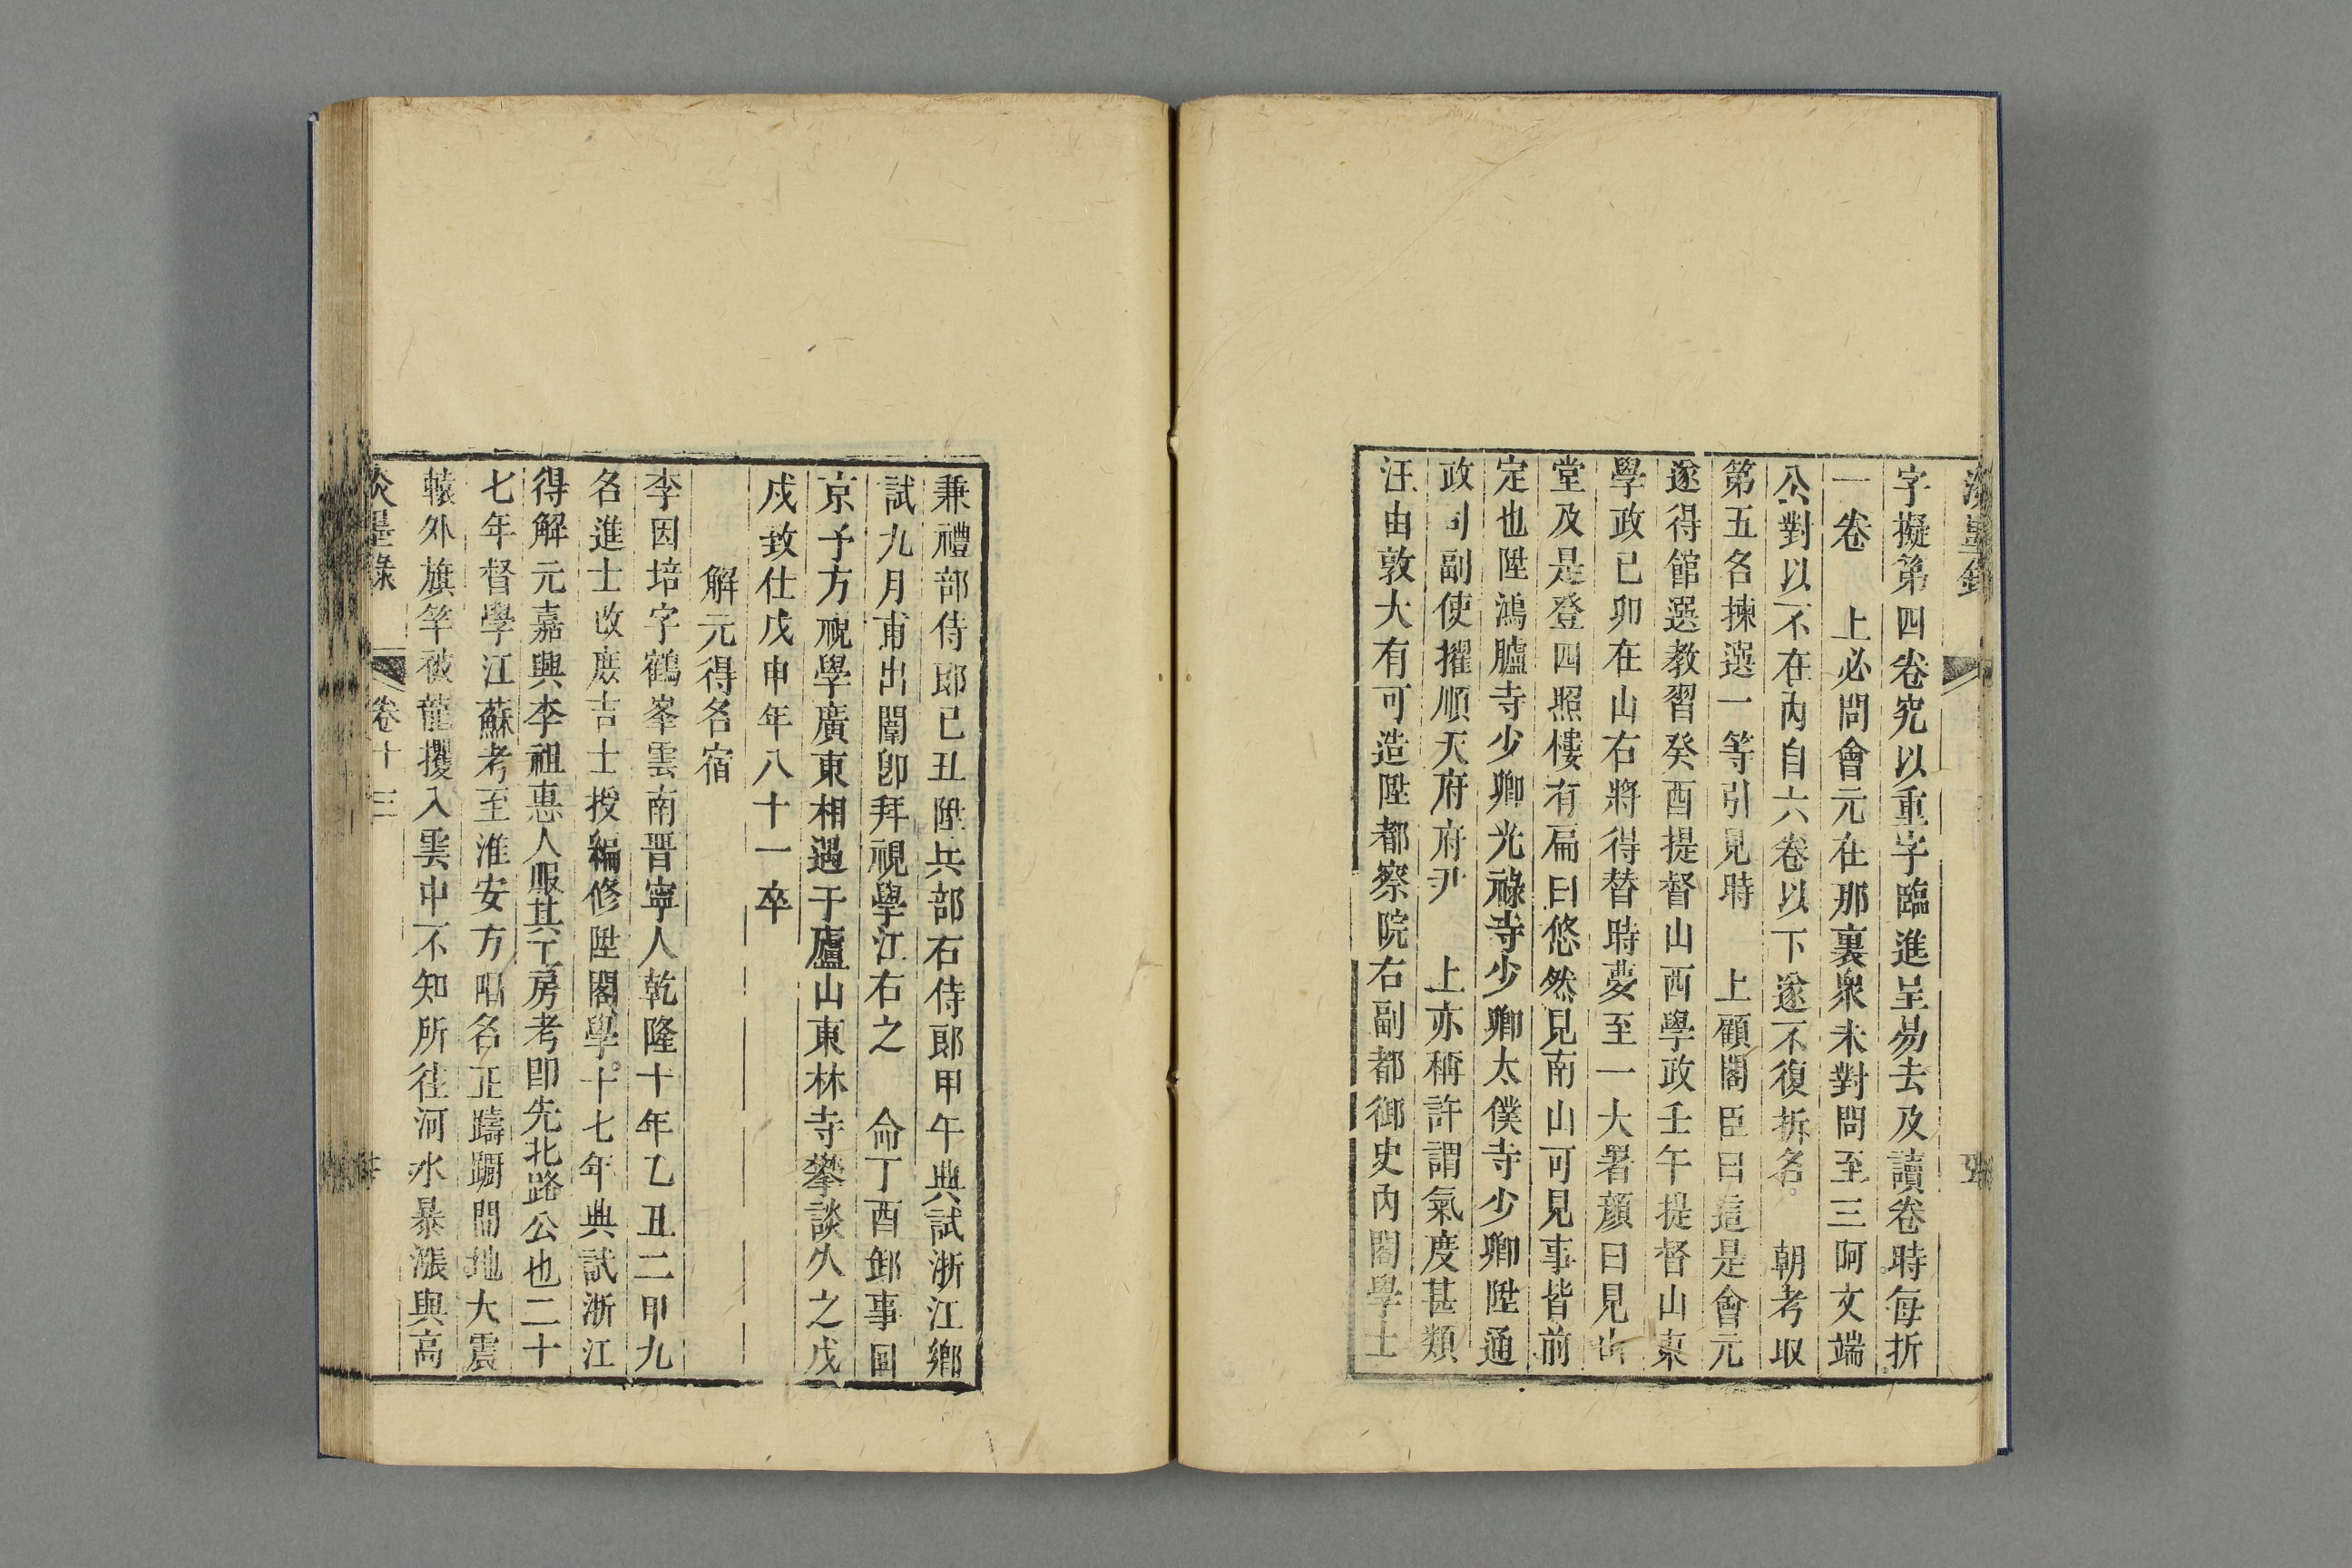 字擬第四卷究以重字臨進呈易去及讀卷時每折
一卷　上必問會元在那裏衆未對問至三阿文端
公對以不在内自六卷以下遂不復拆名。　朝考取
第五名揀選一等引見時　上顧閣臣曰這是會元
遂得館選教習癸酉提督山西學政壬午提督山東
學政已卯在山右將得替時夢至一大署顏曰見山
堂及是登四照樓有扁曰悠然見南山可見事皆前
定也陞鴻臚寺少卿光祿寺少卿太僕寺少卿陞通
政司副使擢順天府府尹　上亦稱許謂氣度甚類
汪由敦大有可造陞都察院右副都御史内閣學士
兼禮部侍郎已丑陞兵部右侍郎甲午典試浙江鄉
試九月甫出闈卽拜視學江右之　命丁酉卸事回
京予方視學廣東相遇于廬山東林寺攀談久之戊
戍致仕戊申年八十一卒
解元得名宿
李因培字鶴峯雲南晋寧人乾隆十年乙丑二甲九
名進士改庶吉士授編修陞閣學。十七年典試浙江
得解元嘉興李祖惠人服其工房考卽先北路公也二十
七年督學江蘇考至淮安方唱名正躊躕間地大震
轅外旗竿被龍攫入雲中不知所往河水暴漲與高
墨錄　卷十三